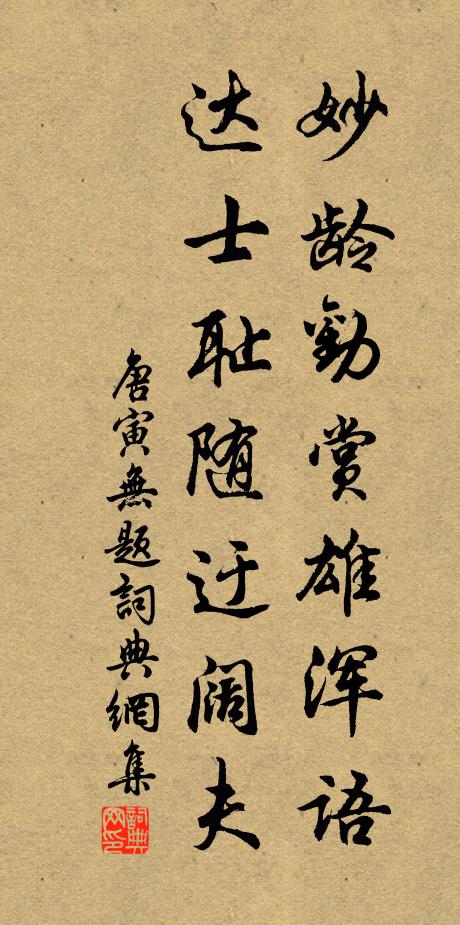 妙龄勸赏雄浑语
达士耻随迂阔夫
唐寅無題詞典網集
詞典網印